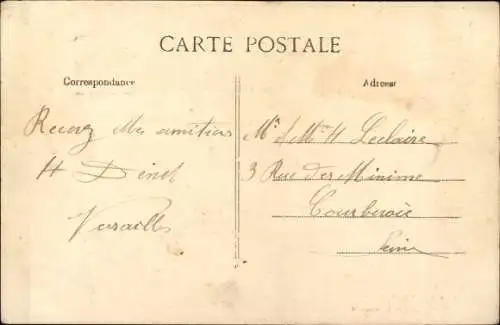 CARTE POSTALE
Correspondance
Adresse
Recevez Mes amitiés
H Dinet
Versailles
Mr & Mme H Leclaire
3 Rue des Minime
Courbevoie
Seine